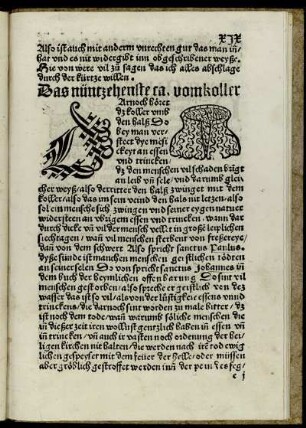 XIX
Also ist auch mit anderm vnrechten gut das man in̄
hat vnd es nit widergibt im̄ obgeschribener weyße.
Hie von were vil zů sagen das ich alles abschlage
durch der kürtze willen.
Das nüntzehenste ca. vom koller
Arnoch höret
dz koller vmb
den halß Do
bey man ver-
steet dye messi
ckeyt an essen
vnd trincken
dz den menschen vil schaden bringt
an leib vnd sele / vnd darumb gleic
cher weyß / also der ritter den halß zwinget mit dem
koller / also das im sein veind den hals nit letzen / also
sol ein mensche sich zwingen vnd seiner eygen natuer
widersteen an vbrigem essen vnd trincken / wann dar
durch dicke vn̄ vil der mensch vellet in große leyplichen
siechtagen / wan̄ vil menschen sterbent von freßerey /
dan̄ von dem schwert Als spricht sanctus Paulus.
Dyße sünde ist manchen menschen geistlichen tödten
an seiner selen So von spricht sanctus Johannes in̄
dem buch der heymlichen offenbarung So sint vil
menschen gestorben / also spreche er geistlich von dez
wasser das ist so vil / als von der lüstigkeit essens vnnd
trinckens / die darnoch sint worden zu male bitter / dz
ist noch dem tode / wan̄ warumb söliche menschen die
in̄ dießer zeit iren wollust gentzlich haben in̄ essen vn̄
in̄ trincken / vn̄ auch ir vasten noch ordenung der hei-
ligen kirchen nit halten / die werden noch irem tod ewig
lichen gespeyset mit dem feüer der helle / oder müssen
aber gröblich gestroffet werden in̄
c j